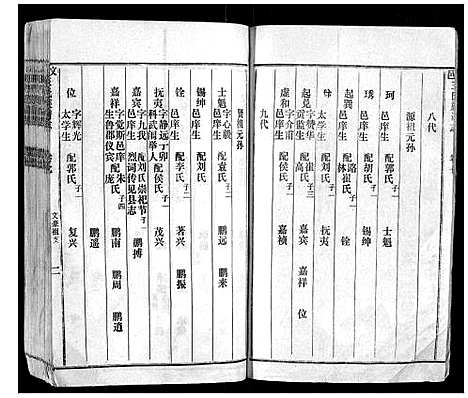 八代
源祖元孙
珂 邑庠生 配周氏 子一 士魁
琇 邑庠生 配胡氏 子一 锡绅
起巽 邑庠生 配林氏 路氏 子一 铨
太学生 配刘氏 子一 抚夷
起晃 字赞华 邑庠生 配崔氏 高氏 子三 嘉宾 嘉祥 位
虚和 字介甫 邑庠生 配侯氏 子一 嘉祯
九代
贤祖元孙
士魁 字心毅 邑庠生 配袁氏 子二 鹏远 鹏来
锡绅 邑庠生 配刘氏
铨 邑庠生 配李氏 子二 著兴 鹏振
抚夷 字静远 丁卯科武闱举人 配闫氏 子一 茂兴
嘉宾 字九我 邑庠生 配刘氏 崇祀节烈祠 传见县志
嘉祥 字觉斯 邑庠生 鲁郡仪宾 配朱氏 庞氏 子四 鹏南 鹏周 鹏逍 鹏遥
位 字辉光 太学生 配郭氏 子一 复兴
文豪祖支
二